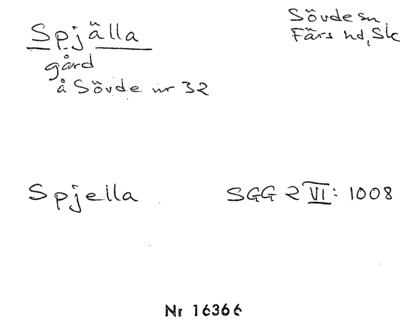 Spjälla
Sövde sn
Färs hd, Sk
gård
å Sövde nr 32
Spjella
SGG 2 VI: 1008
Nr 16366